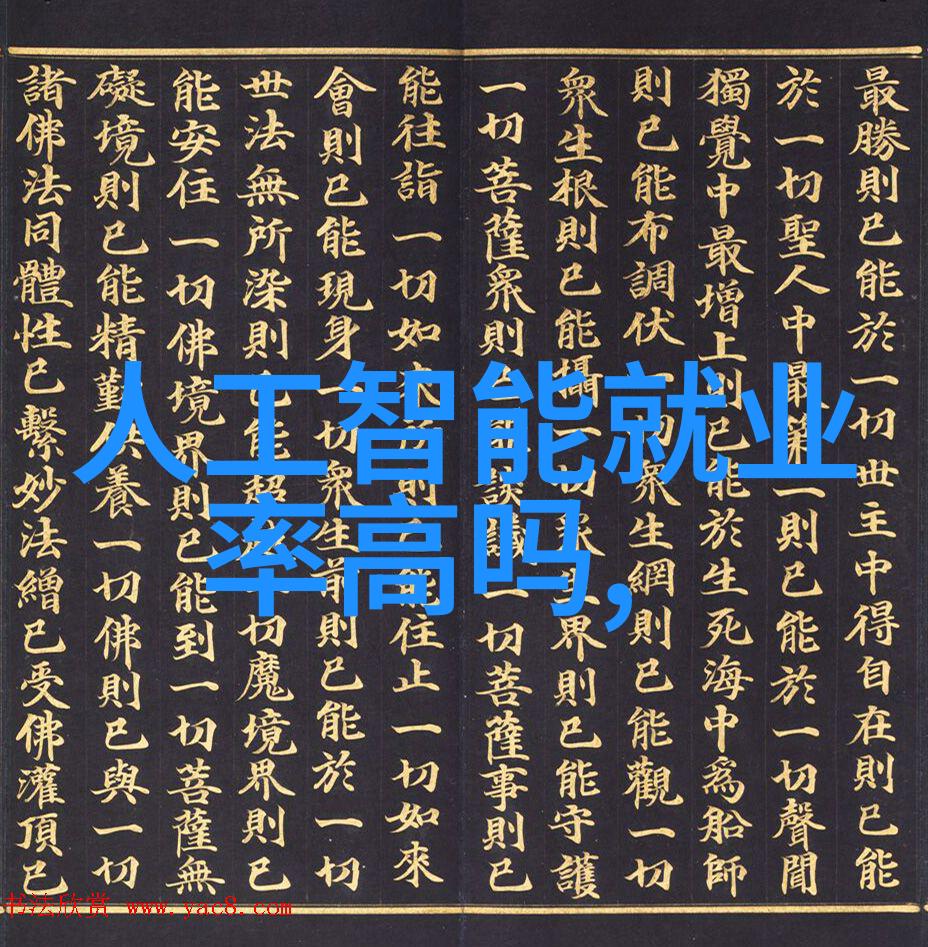 最勝則已能於一切世主中得自在則已能
於一切聖人中最第一則已能於一切聲聞
獨覺中最增上則已能於生死海中爲船師
則已能布調伏一切衆生網則已能觀一切
衆生根則已能攝一切衆生界則已能守護
一切菩薩衆則已談議一切菩薩事則已
能往詣一切如來則能住止一切如來
會則已能現身一切衆生前則已能於一切
世法無所染則已能超切魔境界則已
能安住一切佛境界則已能到一切菩薩無
礙境則已能精勤供養一切佛則已與一切
諸佛法同體性已繫妙法繒已受佛灌頂已
人工智能就业
率高吗,
书法欣赏 www.yac8.com